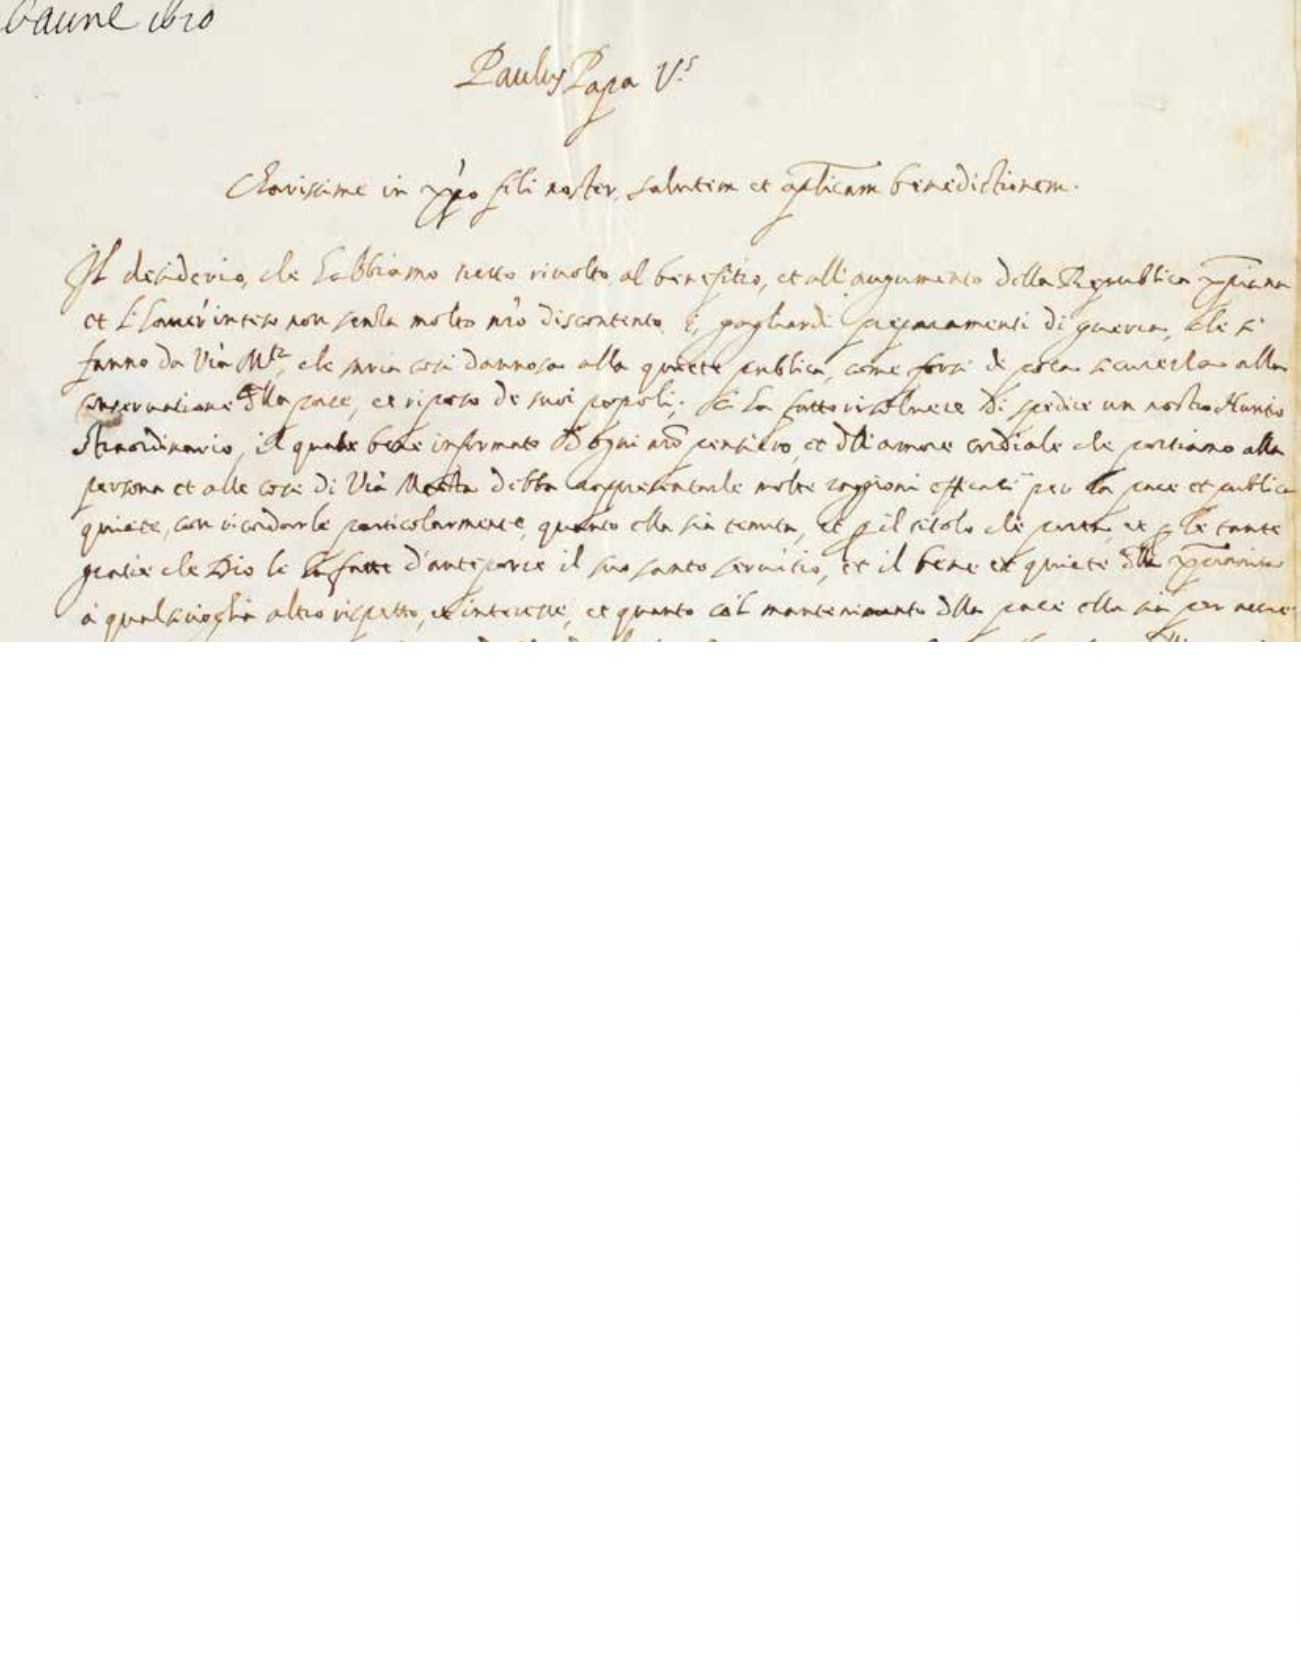 1610
Paulus Papa V.s
Charissime in xpo fili noster, salutem et aplicam benedictionem.
Il desiderio, che habbiamo tutto rivolto al benefitio, et all'augumento della Republica xpiana
et l'haver inteso non senza molto nro discontento i gagliardi preparamenti di guerra, che si
fanno da Vra Mtà, che saria così dannosa alla quiete publica, come forsi di poca sicurezza alla
conservatione dlla pace, et riposo de suoi popoli; ci ha fatto risolvere di spedire un nostro Nuntio
straordinario, il quale bene informato d'ogni nro pensiero, et dll'amore cordiale che portiamo alla
persona et alle cose di Vra Maestà debba rappresentarle molte raggioni efficaci per la pace et publica
quiete, con ricordarle particolarmente, quanto ella sia tenuta, et p il titolo che porta, et p le tante
gratie che Dio le ha fatte d'anteporre il suo santo servitio, et il bene et quiete dlla xpianità
à qualsivoglia altro rispetto, et interesse, et quanto col mantenimento dlla pace ella sia per